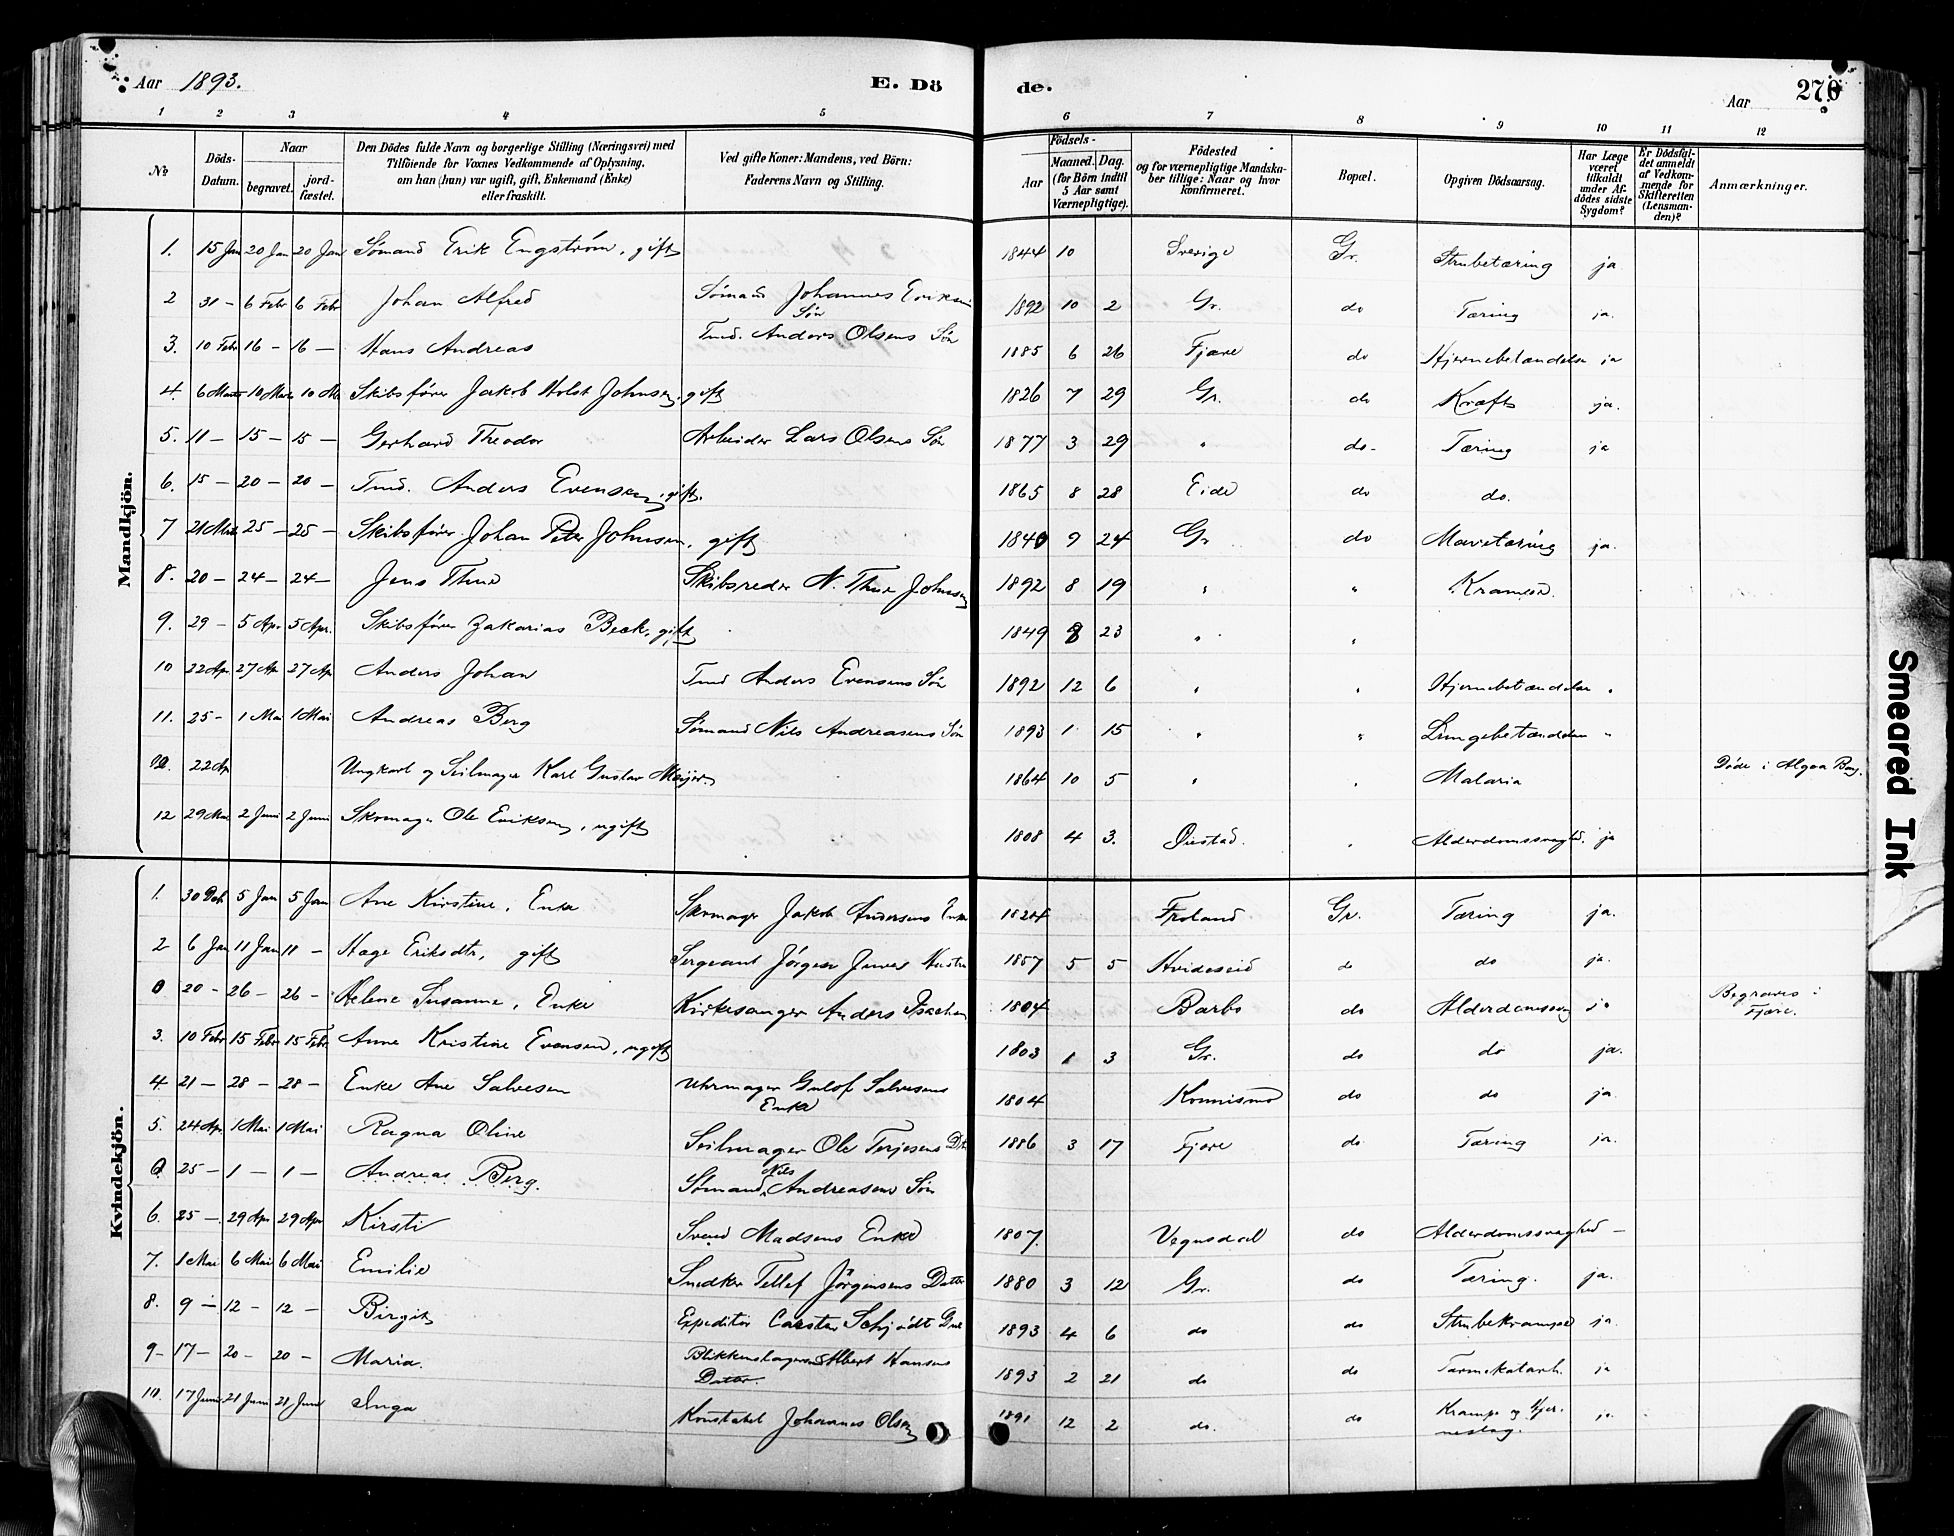 Aar 1893. E. Dö de. Aar 270
1 2 3 4 5 6 7 8 9 10 11 12
№ Döds-Datum. Naar begravet. jordfæstet. Den Dödes fulde Navn og borgerlige Stilling (Næringsvei) med Tilföiende for Voxnes Vedkommende af Oplysning, om han (hun) var ugift, gift, Enkemand (Enke) eller fraskilt. Ved gifte Koner: Mandens, ved Börn: Faderens Navn og Stilling. Födsels- Aar Maaned. Dag. (for Börn indtil 5 Aar samt Værnepligtige). Födested og for værnepligtige Mandskaber tillige: Naar og hvor konfirmeret. Bopæl. Opgiven Dödsaarsag. Har Læge været tilkaldt under Afdödes sidste Sygdom? Er Dödsfaldet anmeldt af Vedkommende for Skifteretten (Lensmanden)? Anmærkninger.
Mandkjön.
1. 15 Jan 20 Jan 20 Jan Sømand Erik Engstrøm, gift 1844 10 Sverige Gr. Strubetæring ja
2 31 - 6 Febr 6 Febr Johan Alfred Sømand Johannes Eriksen Søn 1892 10 2 Gr. do Tæring ja.
3. 10 Febr 16 - 16 - Hans Andreas Tmd. Anders Olsens Søn 1885 6 26 Fjære do Hjernebetændelse ja
4. 6 Marts 10 Marts 10 Ma Skibsfører Jakob Holst Johnsen, gift 1826 7 29 Gr. do Kræft ja.
5. 11 - 15 - 15 - Gerhard Theodor Arbeider Lars Olsens Søn 1877 3 29 " do - Tæring ja
6. 15 - 20 - 20 - Tmd. Anders Evensen, gift. 1865 8 28 Eide do do.
7 21 Marts 25 - 25 - Skibsfører Johan Peter Johnsen, gift 1840 9 24 Gr do Mavetæring ja.
8. 20 - 24 - 24 - Jens Thue Skibsreder N. Thue Johnsen 1892 8 19 " " Krampe.
9. 29 - 5 Apr. 5 Apr. Skibsfører Zakarias Beck, gift 1849 8 23 " "
10 22 Ap. 27 Ap 27 Ap Anders Johan Tmd Anders Evensens Søn 1892 12 6 " " Hjernebetændelse "
11. 25 - 1 Mai 1 Mai Andreas Berg Sømand Nils Andreasens Søn 1893 1 15 " " Lungebetændelse "
22 Ap Ungkarl og Seilmager Karl Gustav Meijer 1864 10 5 " " Malaria Døde i Algoa Bay.
12 29 Mai 2 Juni 2 Juni Skomager Ole Eriksen, ugift 1808 4 3. Øiestad. " Alderdomssvaghed. ja
Kvindekjön.
1. 30 Dec. 5 Jan 5 Jan Ane Kirstine, Enke Skomager Jakob Andersens Enke 1824 Froland Gr. Tæring ja.
2 6 Jan 11 Jan 11 - Hæge Eriksdtr, gift Sergeant Jørgen Hustru 1857 5 5 Hvideseid do do ja.
0 20 - 26 - 26 - Helene Susanne, Enke Kirkesanger Anders Isachsen 1804 Barbo do Alderdomssvag ja Begraves i Fjære.
3. 10 Febr 15 Febr 15 Febr Anne Kristine Evensen, ugift 1803 1 3 Gr. do do ja.
4. 21 - 28 - 28 - Enke Ane Salvesen Uhrmager Gulof Salvesens Enke 1804 Konnismo do do ja.
5. 24 Ap. 1 Mai 1 Mai Ragna Oline Seilmager Ole Terjesens Dtr 1886 3 17 Fjære do Tæring ja.
0 25 - 1 - 1 - Andreas Berg. Sømand Nils Andreasens Søn
6. 25 - 29 Apr 29 Apr Kirsti Svend Madsens Enke 1807. Vegusdal do Alderdomssvaghed -
7. 1 Mai 6 Mai 6 Mai Emilie Snedker Tellef Jörgensens Datter 1880 3 12 Gr. do Tæring. ja.
8. 9 - 12 - 12 - Birgit Expeditør Carsten Schjødt Dat 1893 4 6 do do Strubekrampe ja.
9 - 17 - 20 - 20 - Maria. Blikkenslager Albert Hansens Datter. 1893 2 21 do do Tarmekatarh. ja
10. 17 Juni 21 Juni 21 Juni Inga Konstabel Johannes Olsen 1891 12 2 do. do Krampe og Hjerneslag. ja.
Smeared Ink